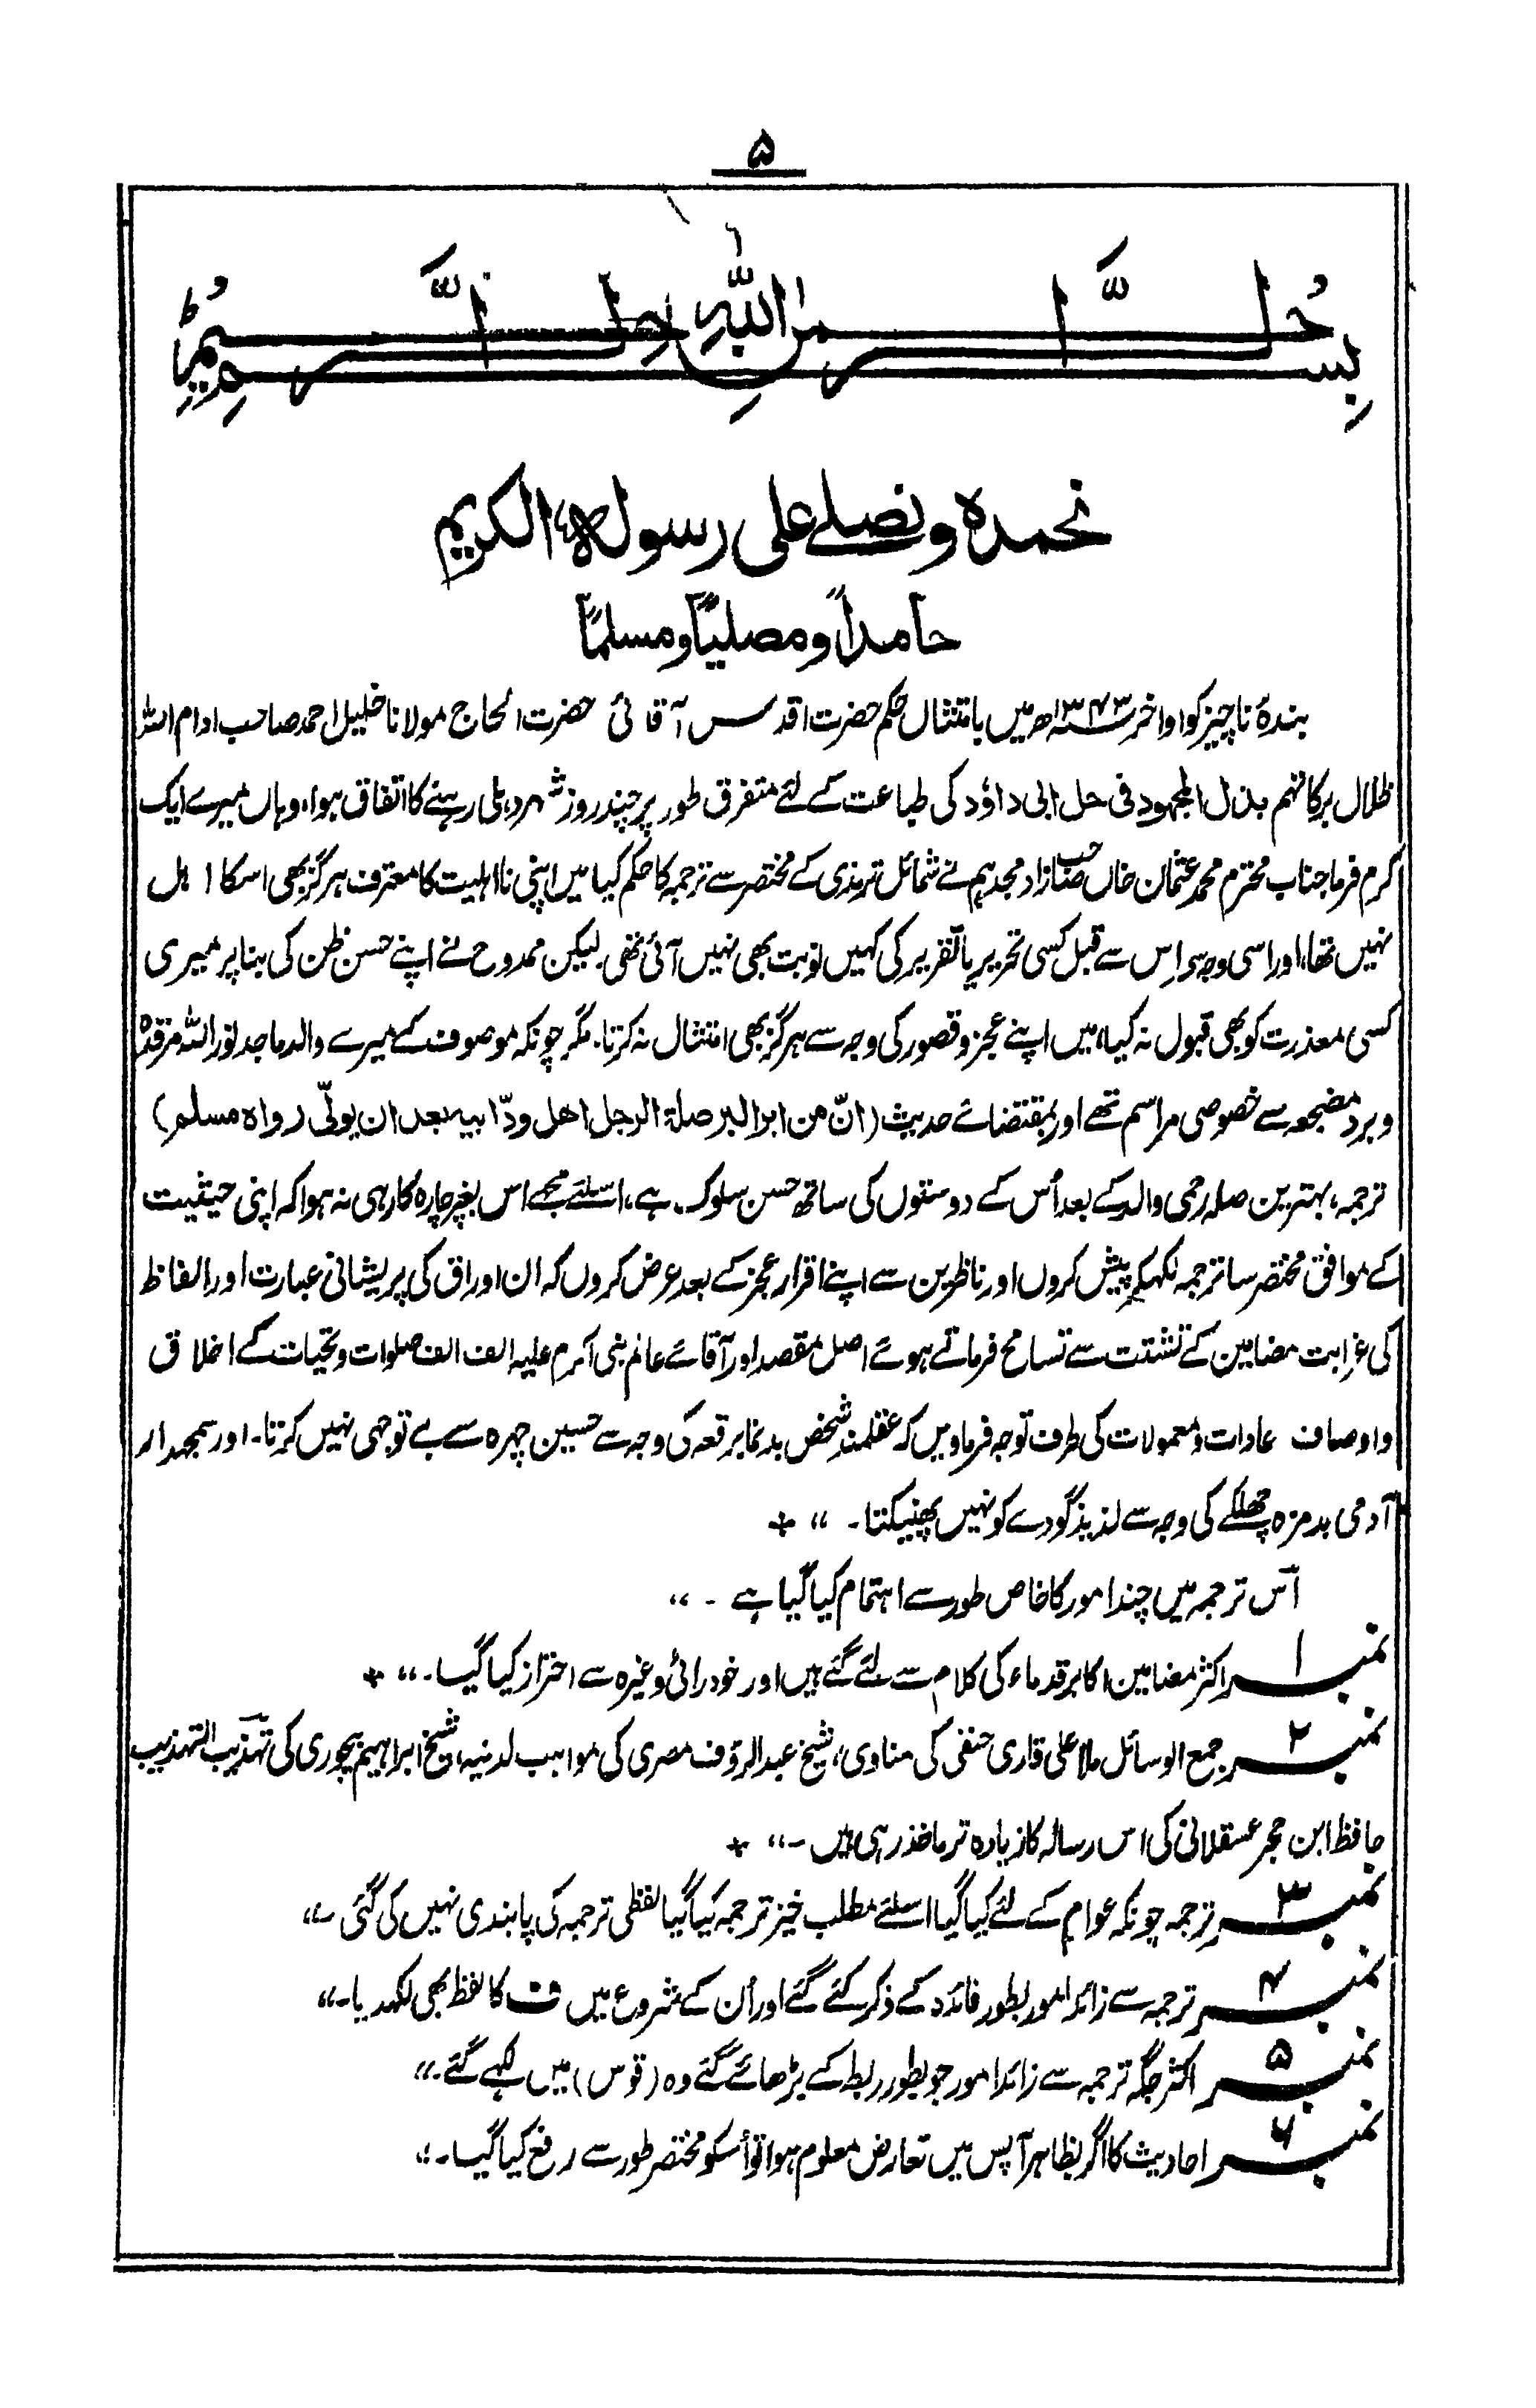 ۵
بِسْمِ اللّٰہِ الرَّحْمٰنِ الرَّحِیْمِ
نحمدہ ونصلے علی رسولہ الکریم
حامداً ومصلیاً ومسلماً
بندۂ ناچیز کو اواخر ۱۳۴۳ھ میں بامتثال حکم حضرت اقدس آقائی حضرت الحاج مولانا خلیل احمد صاحب ادام اللہ
ظلال برکاتہم بذل المجہود فی حل ابی داؤد کی طباعت کے لئے متفرق طور پر چند روز شہر دہلی رہنے کا اتفاق ہوا، وہاں میرے ایک
کرم فرما جناب محترم محمد عثمان خاں صاحب زاد مجدہم نے شمائل ترمذی کے مختصر سے ترجمہ کا حکم کیا میں اپنی نااہلیت کا معترف ہرگز بھی اسکا اہل
نہیں تھا، اور اسی وجہ سے اِس سے قبل کسی تحریر یا تقریر کی کہیں نوبت بھی نہیں آئی تھی۔ لیکن ممدوح نے اپنے حسن ظن کی بنا پر میری
کسی معذرت کو بھی قبول نہ کیا، میں اپنے عجز و قصور کی وجہ سے ہرگز بھی امتثال نہ کرتا۔ مگر چونکہ موصوف کے میرے والد ماجد نور اللہ مرقدہ
وبرد مضجعہ سے خصوصی مراسم تھے اور بمقتضائے حدیث (انّ من ابر البر صلۃ الرجل اھل ودّ ابیہ بعد ان یولّی رواہ مسلم)
ترجمہ، بہترین صلہ رحمی والد کے بعد اُس کے دوستوں کی ساتھ حسن سلوک ہے، اسلئے مجھے اس بغیر چارہ کار ہی نہ ہوا کہ اپنی حیثیت
کے موافق مختصر سا ترجمہ لکھکر پیش کروں اور ناظرین سے اپنے اقرار عجز کے بعد عرض کروں کہ ان اوراق کی پریشانی عبارت اور الفاظ
کی غرابت مضامین کے تشتت سے تسامح فرماتے ہوئے اصل مقصد اور آقائے عالم نبی اکرم علیہ الف الف صلوات وتحیات کے اخلاق
و اوصاف عادات و معمولات کی طرف توجہ فرماویں کہ عقلمند شخص بدنما برقعہ کی وجہ سے حسین چہرہ سے بے توجہی نہیں کرتا۔ اور سمجھدار
آدمی بدمزہ چھلکے کی وجہ سے لذیذ گودے کو نہیں پھینکتا۔ ،، +
اس ترجمہ میں چند امور کا خاص طور سے اہتمام کیا گیا ہے ۔ ،،
نمبر ۱ اکثر مضامین اکابر قدماء کی کلام سے لئے گئے ہیں اور خودرائی وغیرہ سے احتراز کیا گیا۔ ،، +
نمبر ۲ جمع الوسائل ملا علی قاری حنفی کی مناوی، شیخ عبدالرؤف مصری کی مواہب لدنیہ، شیخ ابراہیم بیجوری کی تہذیب التہذیب
حافظ ابن حجر عسقلانی کی اس رسالہ کا زیادہ تر ماخذ رہی ہیں ۔ ،، +
نمبر ۳ ترجمہ چونکہ عوام کے لئے کیا گیا اسلئے مطلب خیز ترجمہ کیا گیا لفظی ترجمہ کی پابندی نہیں کی گئی ۔،،
نمبر ۴ ترجمہ سے زائد امور بطور فائدہ کے ذکر کئے گئے اور اُن کے شروع میں ف کا لفظ بھی لکھدیا۔،،
نمبر ۵ اکثر جگہ ترجمہ سے زائد امور جو بطور ربط کے بڑھائے گئے وہ (قوس) میں لکھے گئے۔،،
نمبر ۶ احادیث کا اگر بظاہر آپس میں تعارض معلوم ہوا تو اُسکو مختصر طور سے رفع کیا گیا۔،،